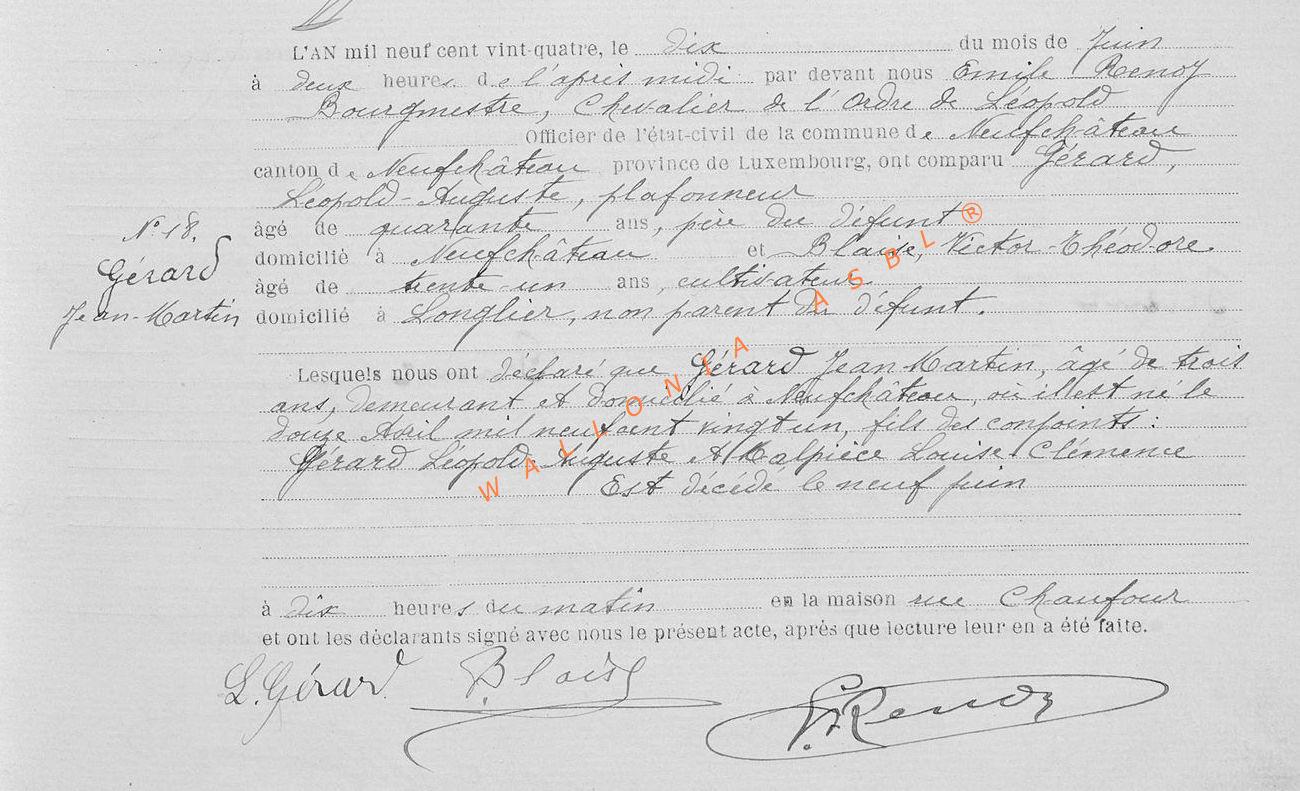 L'AN mil neuf cent vint-quatre, le dix du mois de Juin
à deux heures de l'après midi par devant nous Emile Renoy
Bourgmestre, Chevalier de l'Ordre de Léopold
Officier de l'état-civil de la commune de Neufchâteau
canton de Neufchâteau province de Luxembourg, ont comparu Gérard,
Léopold-Auguste, plafonneur
N° 18. âgé de quarante ans, père du défunt
Gérard domicilié à Neufchâteau et Blaise, Victor-Théodore
âgé de trente-un ans, cultivateur
Jean-Martin domicilié à Longlier, non parent du défunt.
Lesquels nous ont déclaré que Gérard Jean-Martin, âgé de trois
ans, demeurant et domicilié à Neufchâteau, où il est né le
douze Avril mil neuf cent vingt un, fils des conjoints :
Gérard Léopold-Auguste et Malpièce Louise Clémence
Est décédé le neuf juin
à dix heures du matin en la maison rue Chaufour
et ont les déclarants signé avec nous le présent acte, après que lecture leur en a été faite.
L. Gérard. Blaise E. Renoy
WALLONIA ASBL ®